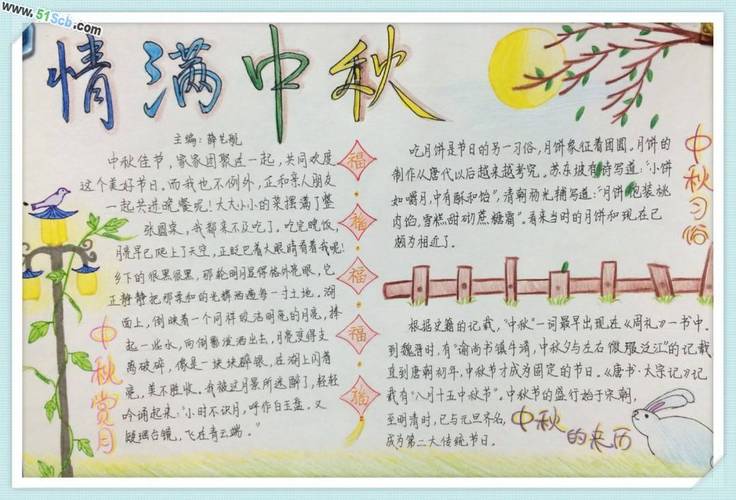 www.51Scb.com
情满中秋
主编：薛艺
中秋佳节，家家团聚在一起，共同欢度
这个美好节日。而我也不例外，正和亲人朋友
一起共进晚餐呢！大大小小的菜摆满了整
张圆桌，我都来不及吃了。吃完晚饭，
月亮早已爬上了天空，正眨巴着大眼睛看着我呢！
乡下的很黑很黑，那轮明月显得格外亮眼，它
正静静把那柔和的光辉洒遍每一寸土地。湖
面上，倒映着一个同样皎洁明亮的月亮，捧
起一些水，向倒影泼洒出去，月亮变得支
离破碎，像是一块块碎银，在湖上闪着
亮，美不胜收。我被这月景所迷醉了，轻轻
吟诵起来：“小时不识月，呼作白玉盘。又
疑瑶台镜，飞在青云端。”
中秋赏月
福
福
福
福
福
吃月饼是节日的另一习俗，月饼象征着团圆，月饼的
制作从唐代以后越来越考究。苏东坡有诗写道：“小饼
如嚼月，中有酥和饴”，清朝杨光辅写道：“月饼饱装桃
肉馅，雪糕甜砌蔗糖霜”。看来当时的月饼和现在已
颇为相近了。
中秋习俗
根据史籍的记载，“中秋”一词最早出现在《周礼》一书中。
到魏晋时，有“谕尚书镇牛渚，中秋夕与左右微服泛江”的记载
直到唐朝初年，中秋节才成为固定的节日。《唐书·太宗记》记
载有“八月十五中秋节”。中秋节的盛行始于宋朝，
至明清时，已与元旦齐名，
成为第二大传统节日。
中秋的来历